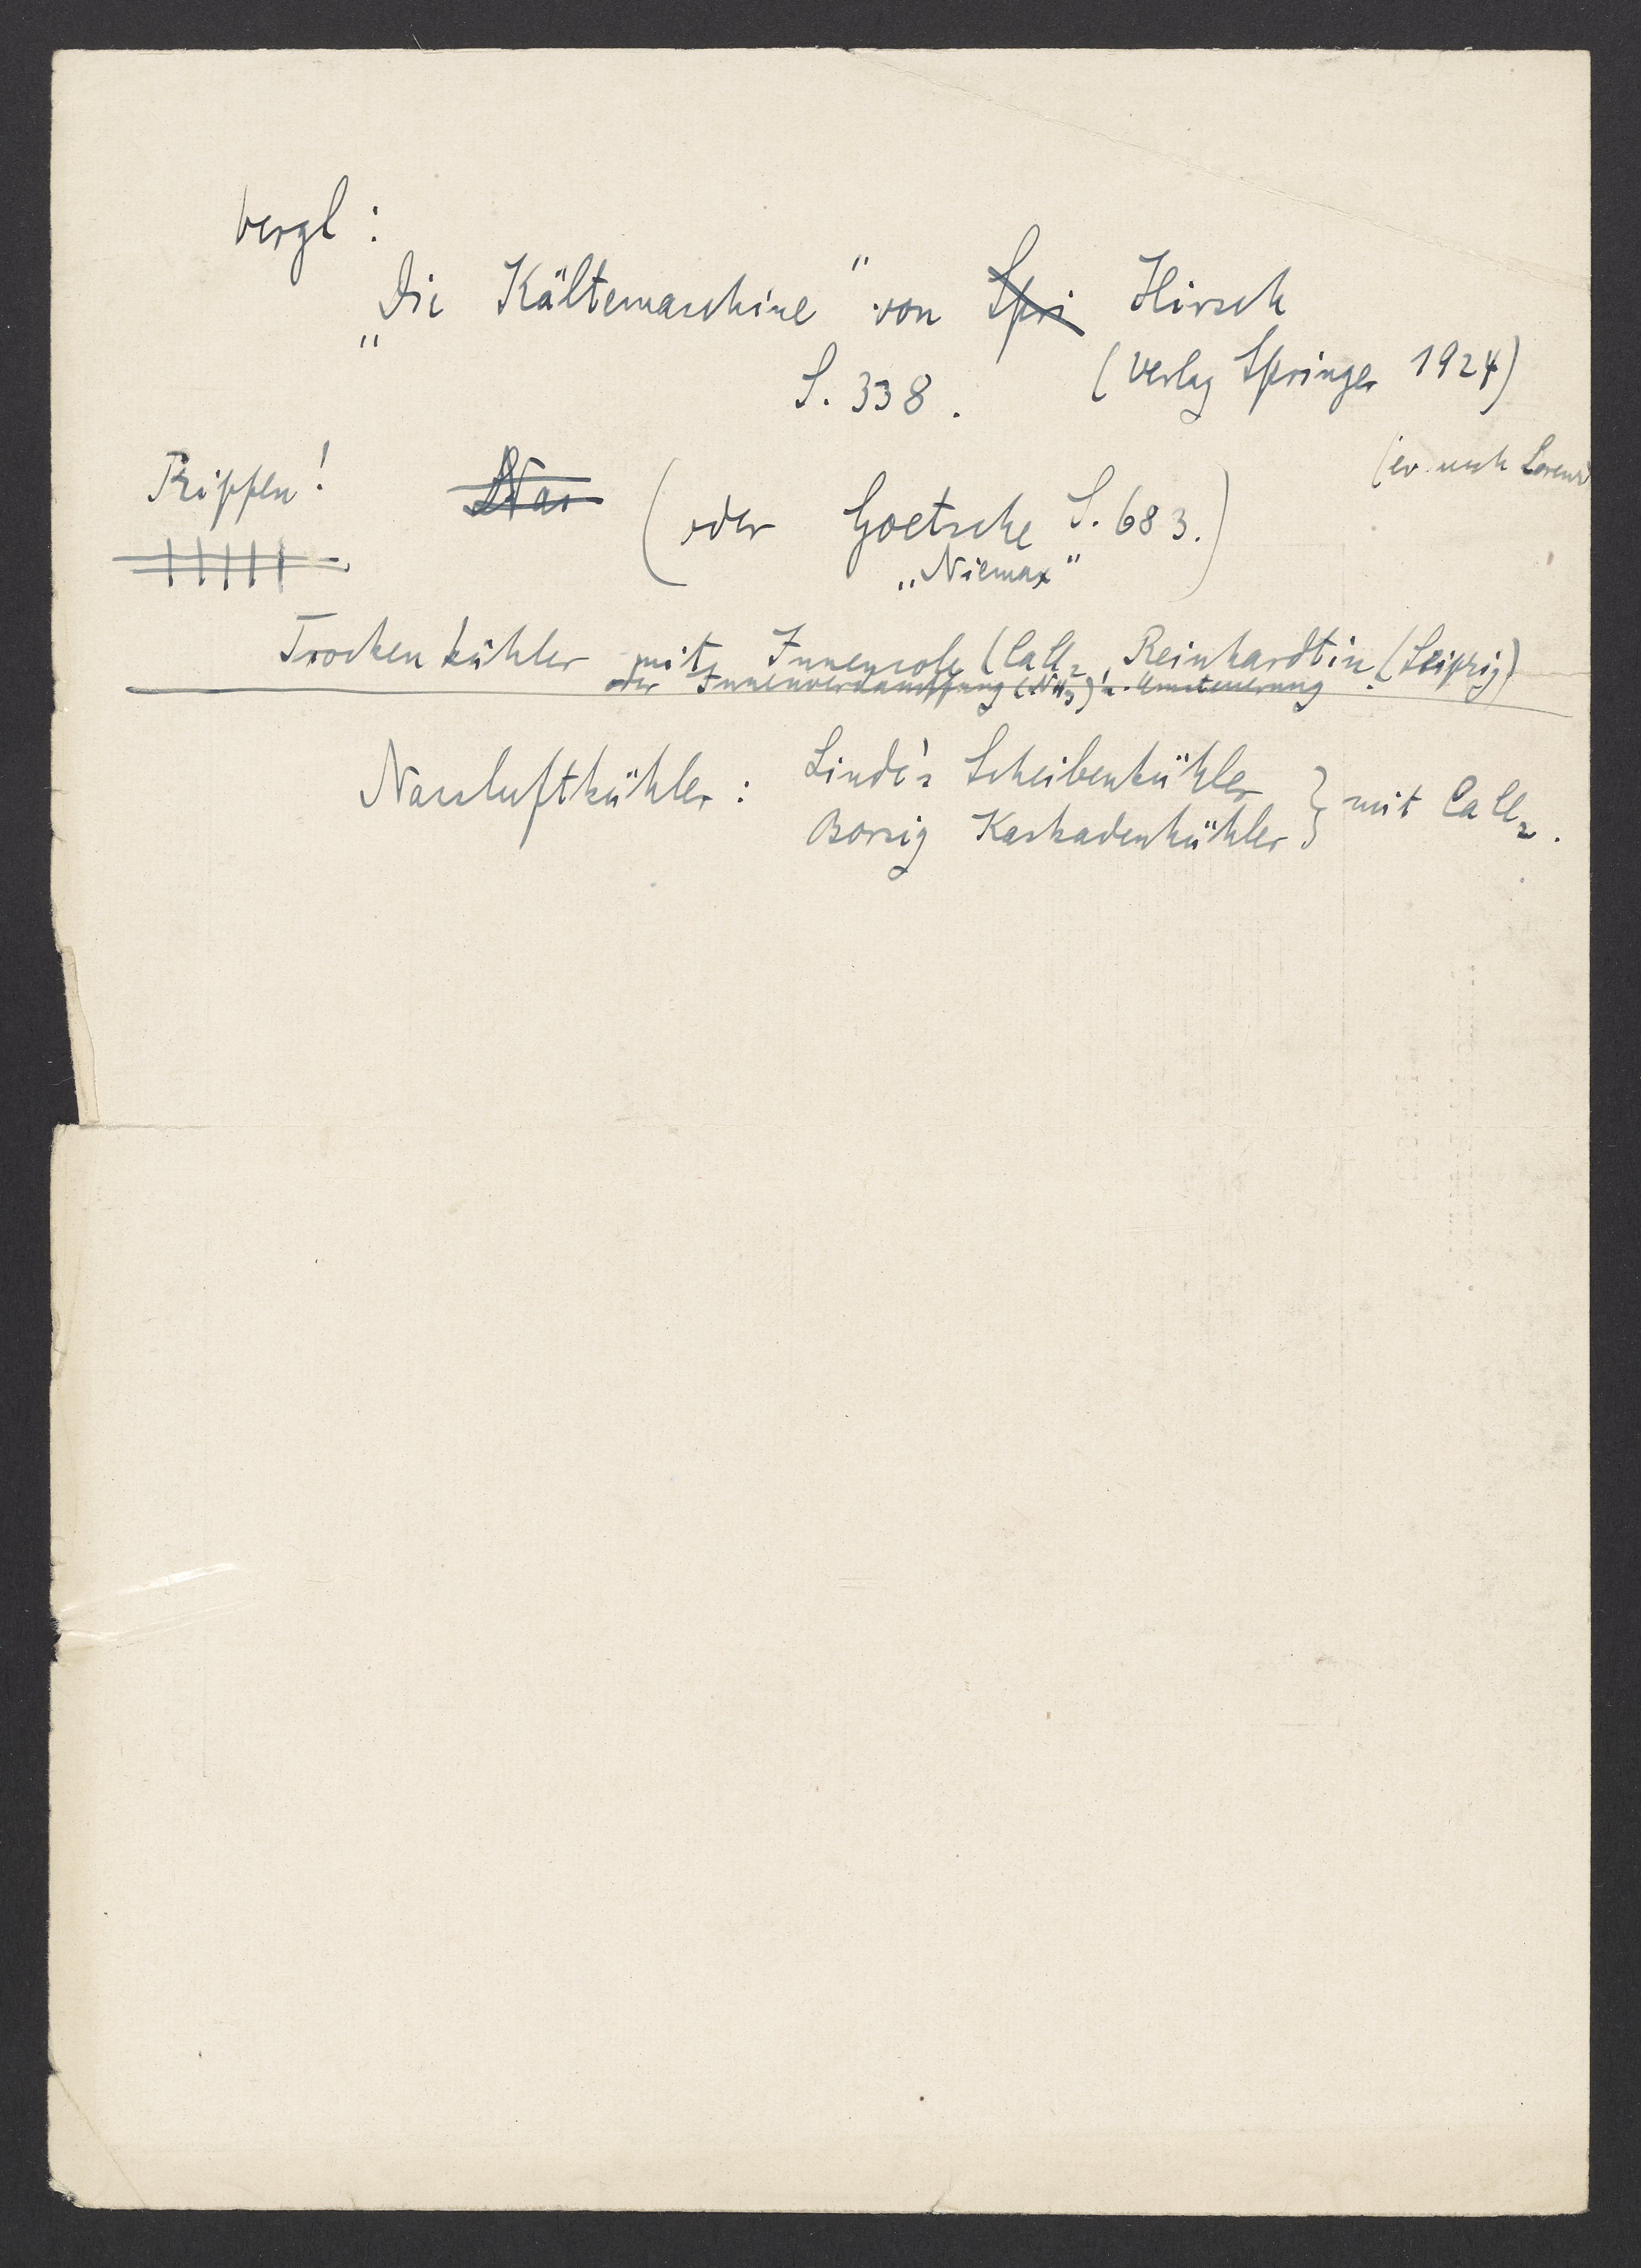 vergl:
„Die Kältemaschine" von Spri Hirsch
S. 338. (Verlag Springer 1924)
(ev. nach Lorenz
Rippen! Nas (oder Goetsche S. 683.)
„Niemax"
Trockenkühler mit Innensole (CaCl2, Reinhardtin (Leipzig)
oder Innenverdampfung (NH3) u. Umsteuerung
Nassluftkühler: Linde's Scheibenkühler
Borsig Kaskadenkühler } mit CaCl2.